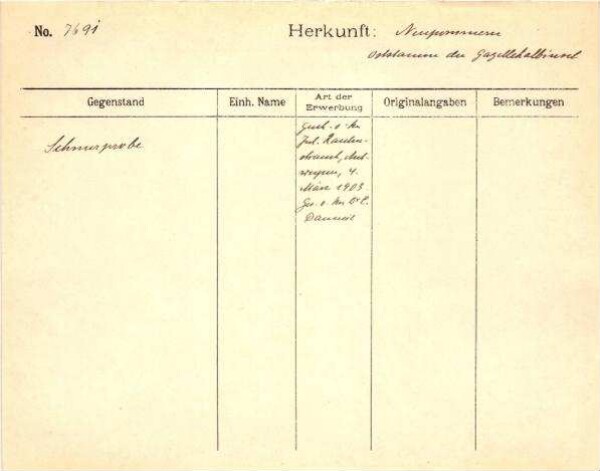 No. 7691
Herkunft: Neupommern
Oststamm der Gazellehalbinsel
Gegenstand Einh. Name Art der Erwerbung Originalangaben Bemerkungen
Schnurprobe
Gesch. v. Hn.
Jul. Rauten-
strauch, Ant-
werpen, 4.
März 1903.
Ges. v. Hn. Dr. E.